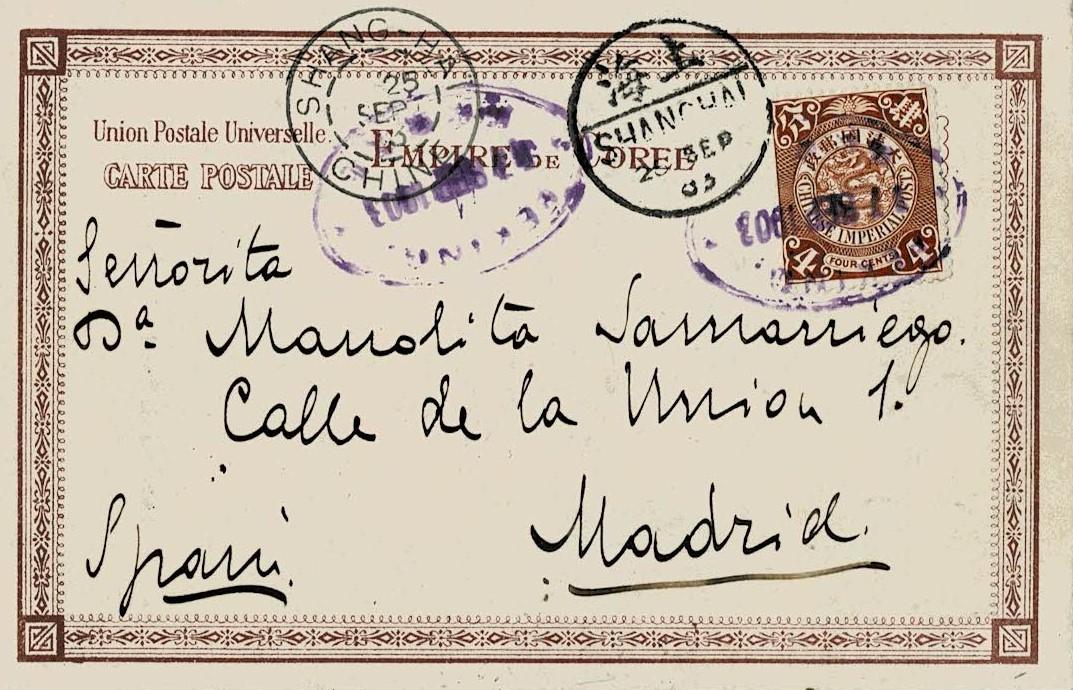 SHANG-HAI
25
SEP
CHINE
上海
SHANGHAI
25 SEP
03
Union Postale Universelle.
EMPIRE DE COREE
CARTE POSTALE
肆分
大清國郵政
CHINESE IMPERIAL POST
4 FOUR CENTS 4
Señorita
Dª Manolita Samaniego.
Calle de la Union 1.
Madrid.
Spain.